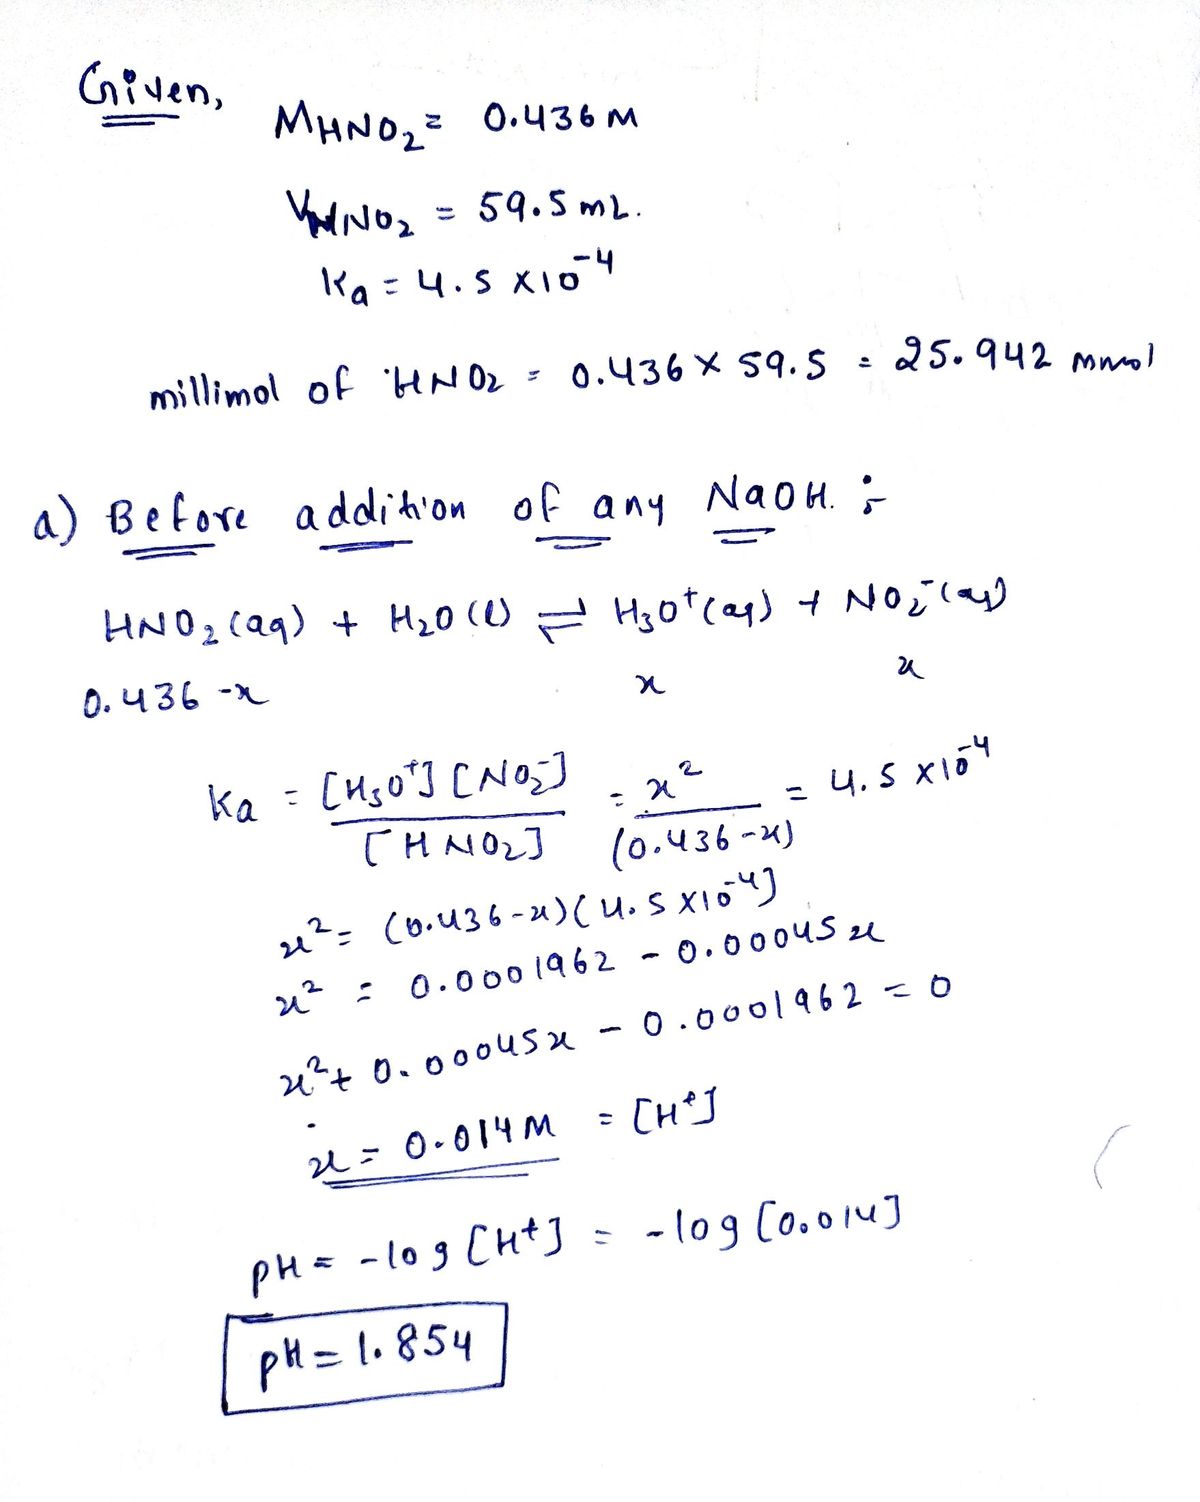 Given,
M_HNO₂ = 0.436 M
V_HNO₂ = 59.5 mL.
Ka = 4.5 × 10⁻⁴
millimol of HNO₂ = 0.436 × 59.5 = 25.942 mmol
a) Before addition of any NaOH :-
HNO₂ (aq) + H₂O (l) ⇌ H₃O⁺ (aq) + NO₂⁻ (aq)
0.436 - x x x
Ka = [H₃O⁺] [NO₂⁻] / [HNO₂] = x² / (0.436 - x) = 4.5 × 10⁻⁴
x² = (0.436 - x) (4.5 × 10⁻⁴]
x² = 0.0001962 - 0.00045 x
x² + 0.00045x - 0.0001962 = 0
x = 0.014 M = [H⁺]
pH = -log [H⁺] = -log [0.014]
pH = 1.854